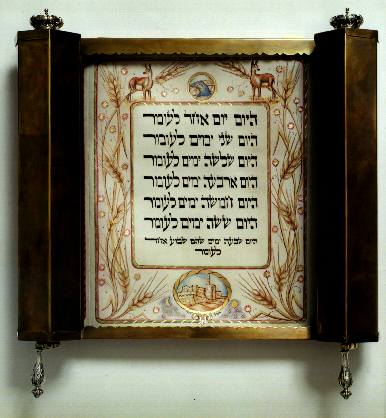 היום יום אחד לעומר
היום שני ימים לעומר
היום שלשה ימים לעומר
היום ארבעה ימים לעומר
היום חמשה ימים לעומר
היום ששה ימים לעומר
היום שבעה ימים שהם שבוע אחד
לעומר